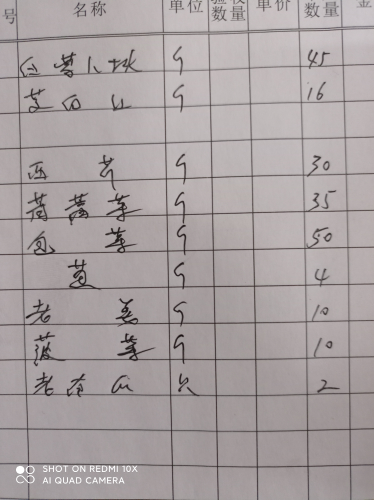 号 名称 单位 验收数量 单价 数量 金
白萝卜球 斤 45
斤 16
西芹 斤 30
斤 35
包菜 斤 50
斤 4
老姜 斤 10
菠菜 斤 10
老南瓜 只 2
SHOT ON REDMI 10X
AI QUAD CAMERA